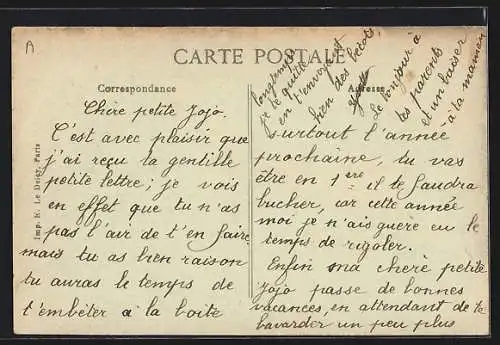 A
CARTE POSTALE
Correspondance
Adresse
Imp. E. Le Deley, Paris
Chère petite Jojo.
C'est avec plaisir que
j'ai reçu la gentille
petite lettre ; je vois
en effet que tu n'as
pas l'air de t'en faire
mais tu as bien raison
tu auras le temps de
t'embêter à la boite
surtout l'année
prochaine, tu vas
être en 1ère il te faudra
bucher, car cette année
moi je n'ais guère eu le
temps de rigoler.
Enfin ma chère petite
Jojo passe de bonnes
vacances, en attendant de te
bavarder un peu plus
longtemps
je te quitte
en t'envoyant
bien des bécots.
Le bonjour à
tes parents
et un baiser
à ta maman